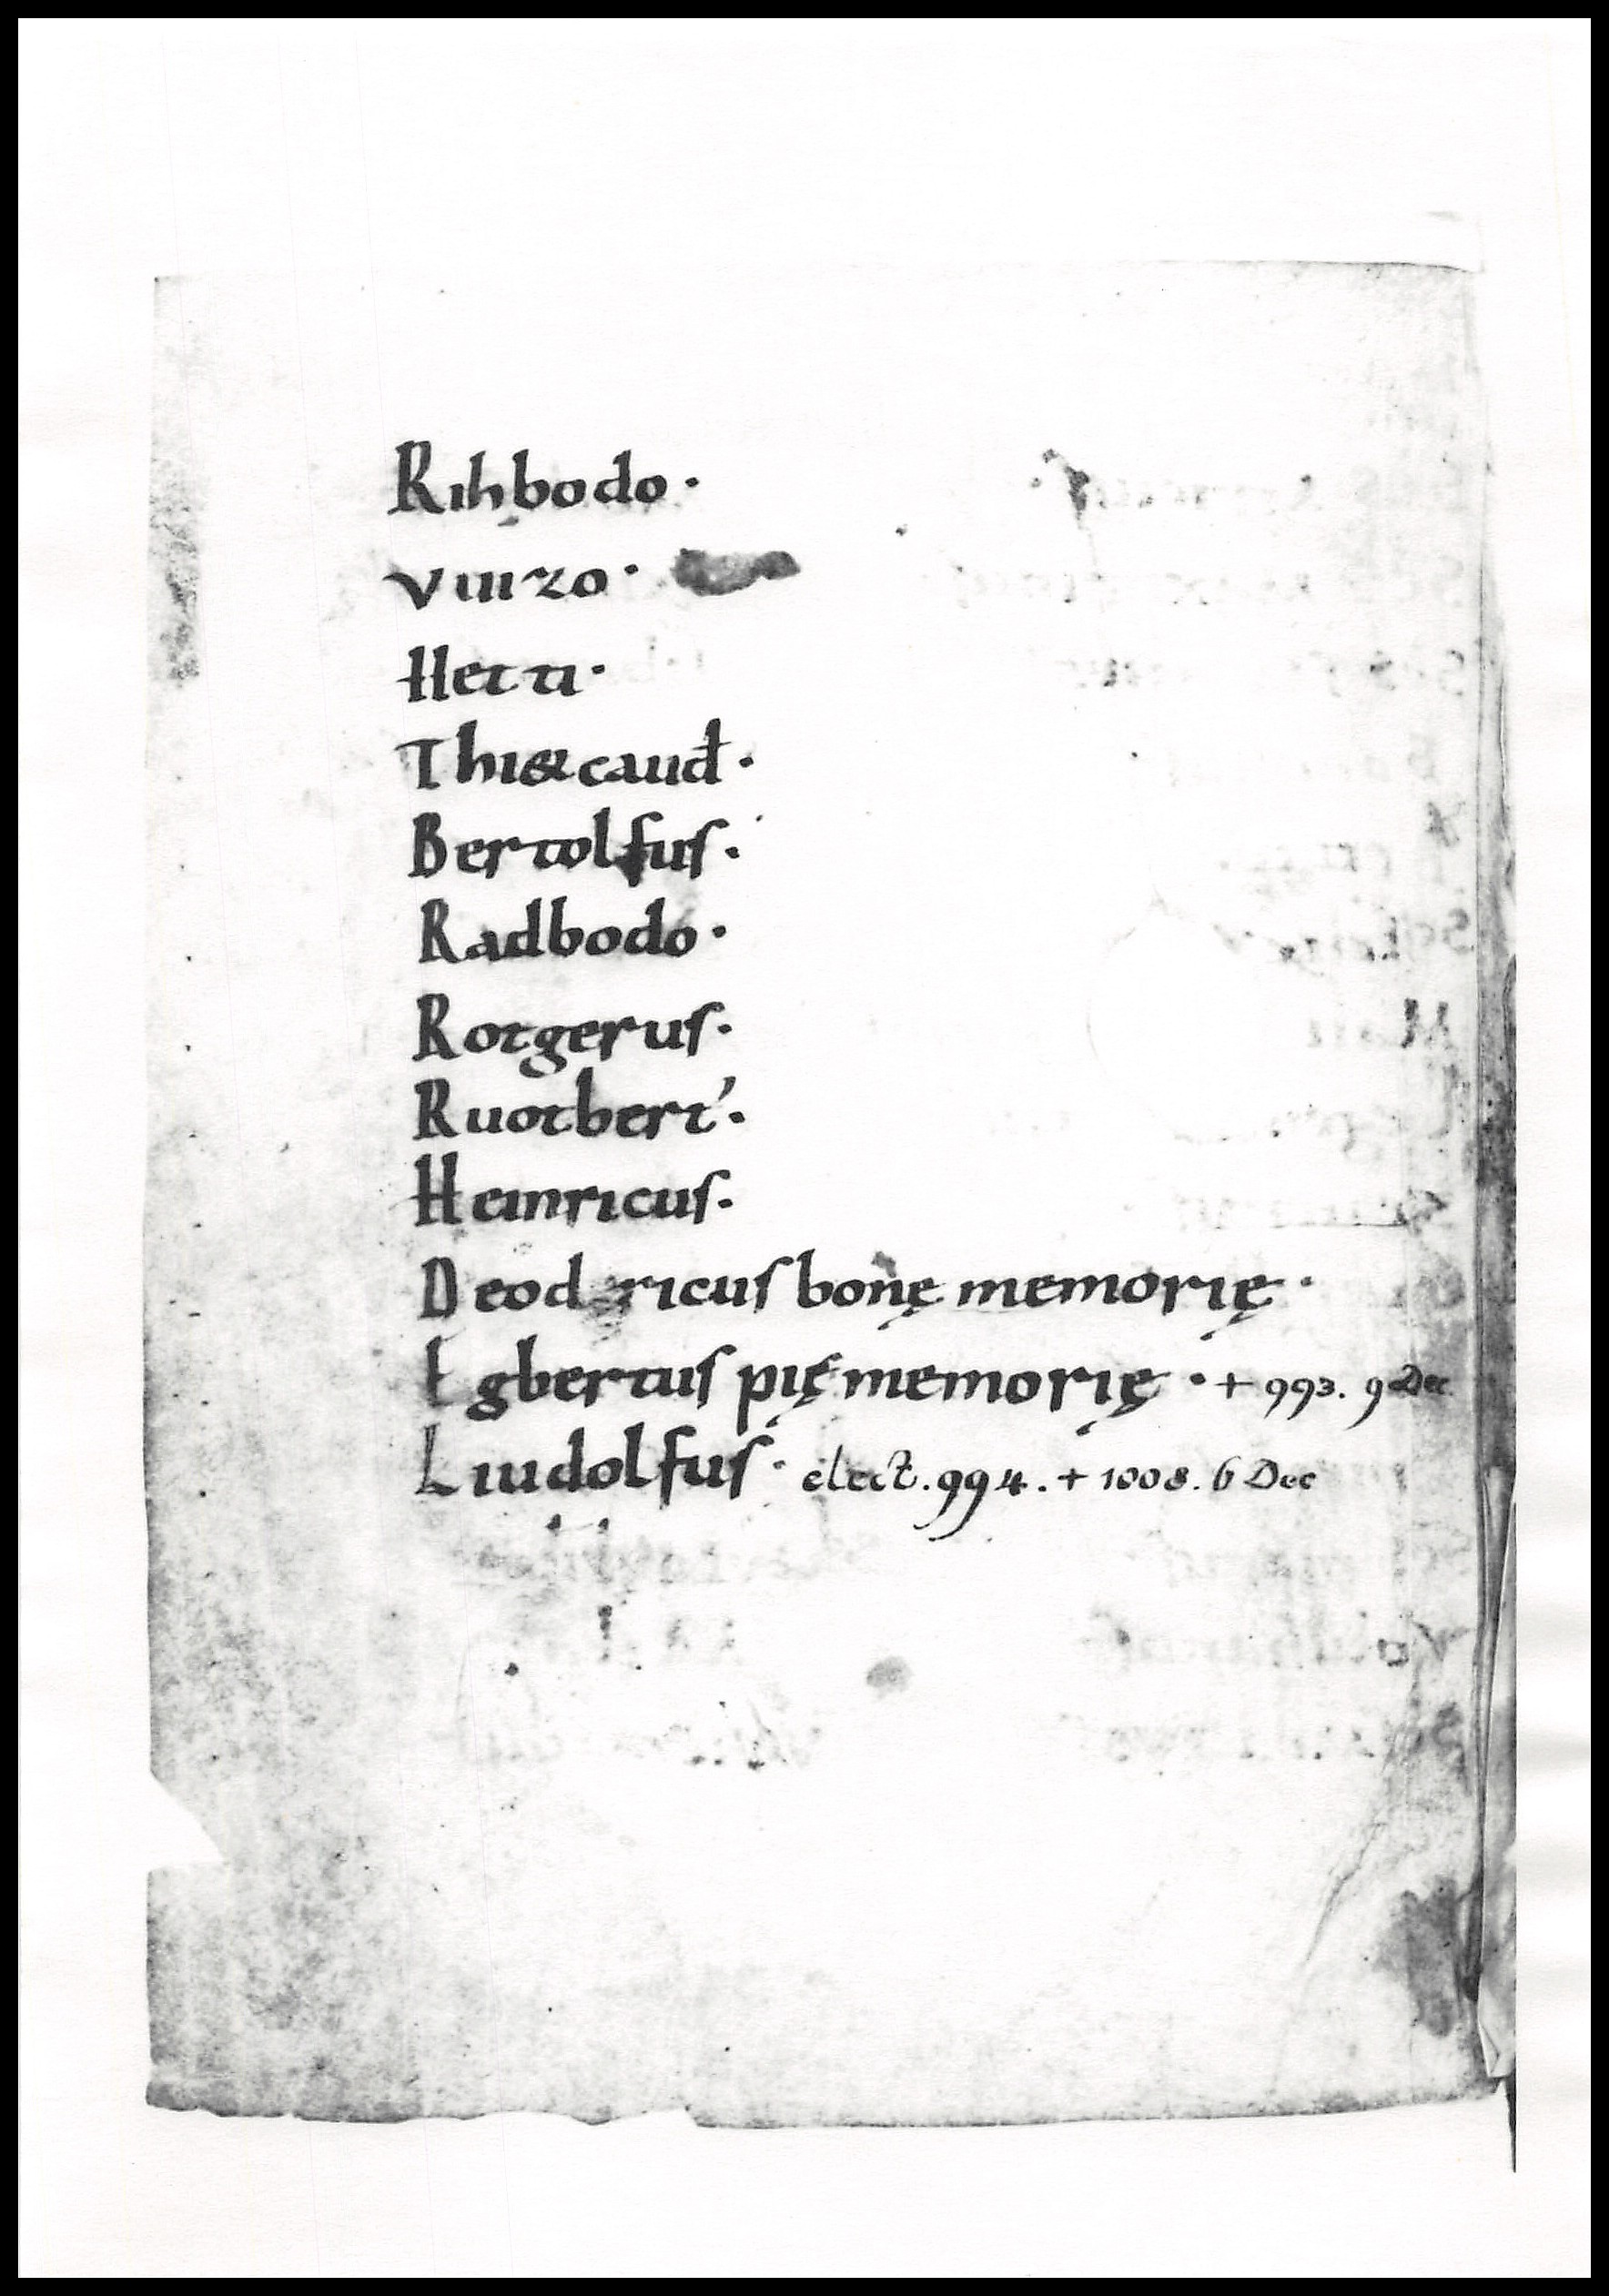 Rihbodo·
VUIZO·
Hetti·
Thi&caud·
Bertolfus·
Radbodo·
Rotgerus·
Ruotbert'·
Heinricus·
Deodricus bonę memorię·
Egbertus pię memorię · + 993. 9 Dec
Liudolfus · elect. 994. + 1008. 6 Dec